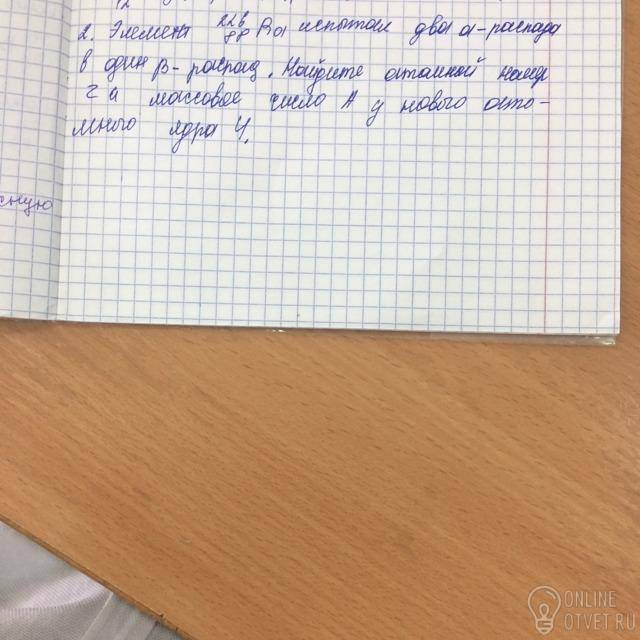 2. Элемент 226 88 Ra испытал два α-распада
и один β-распад. Найдите атомный номер
z и массовое число A у нового ато-
много ядра Y.
сную
ONLINE
OTVET.RU